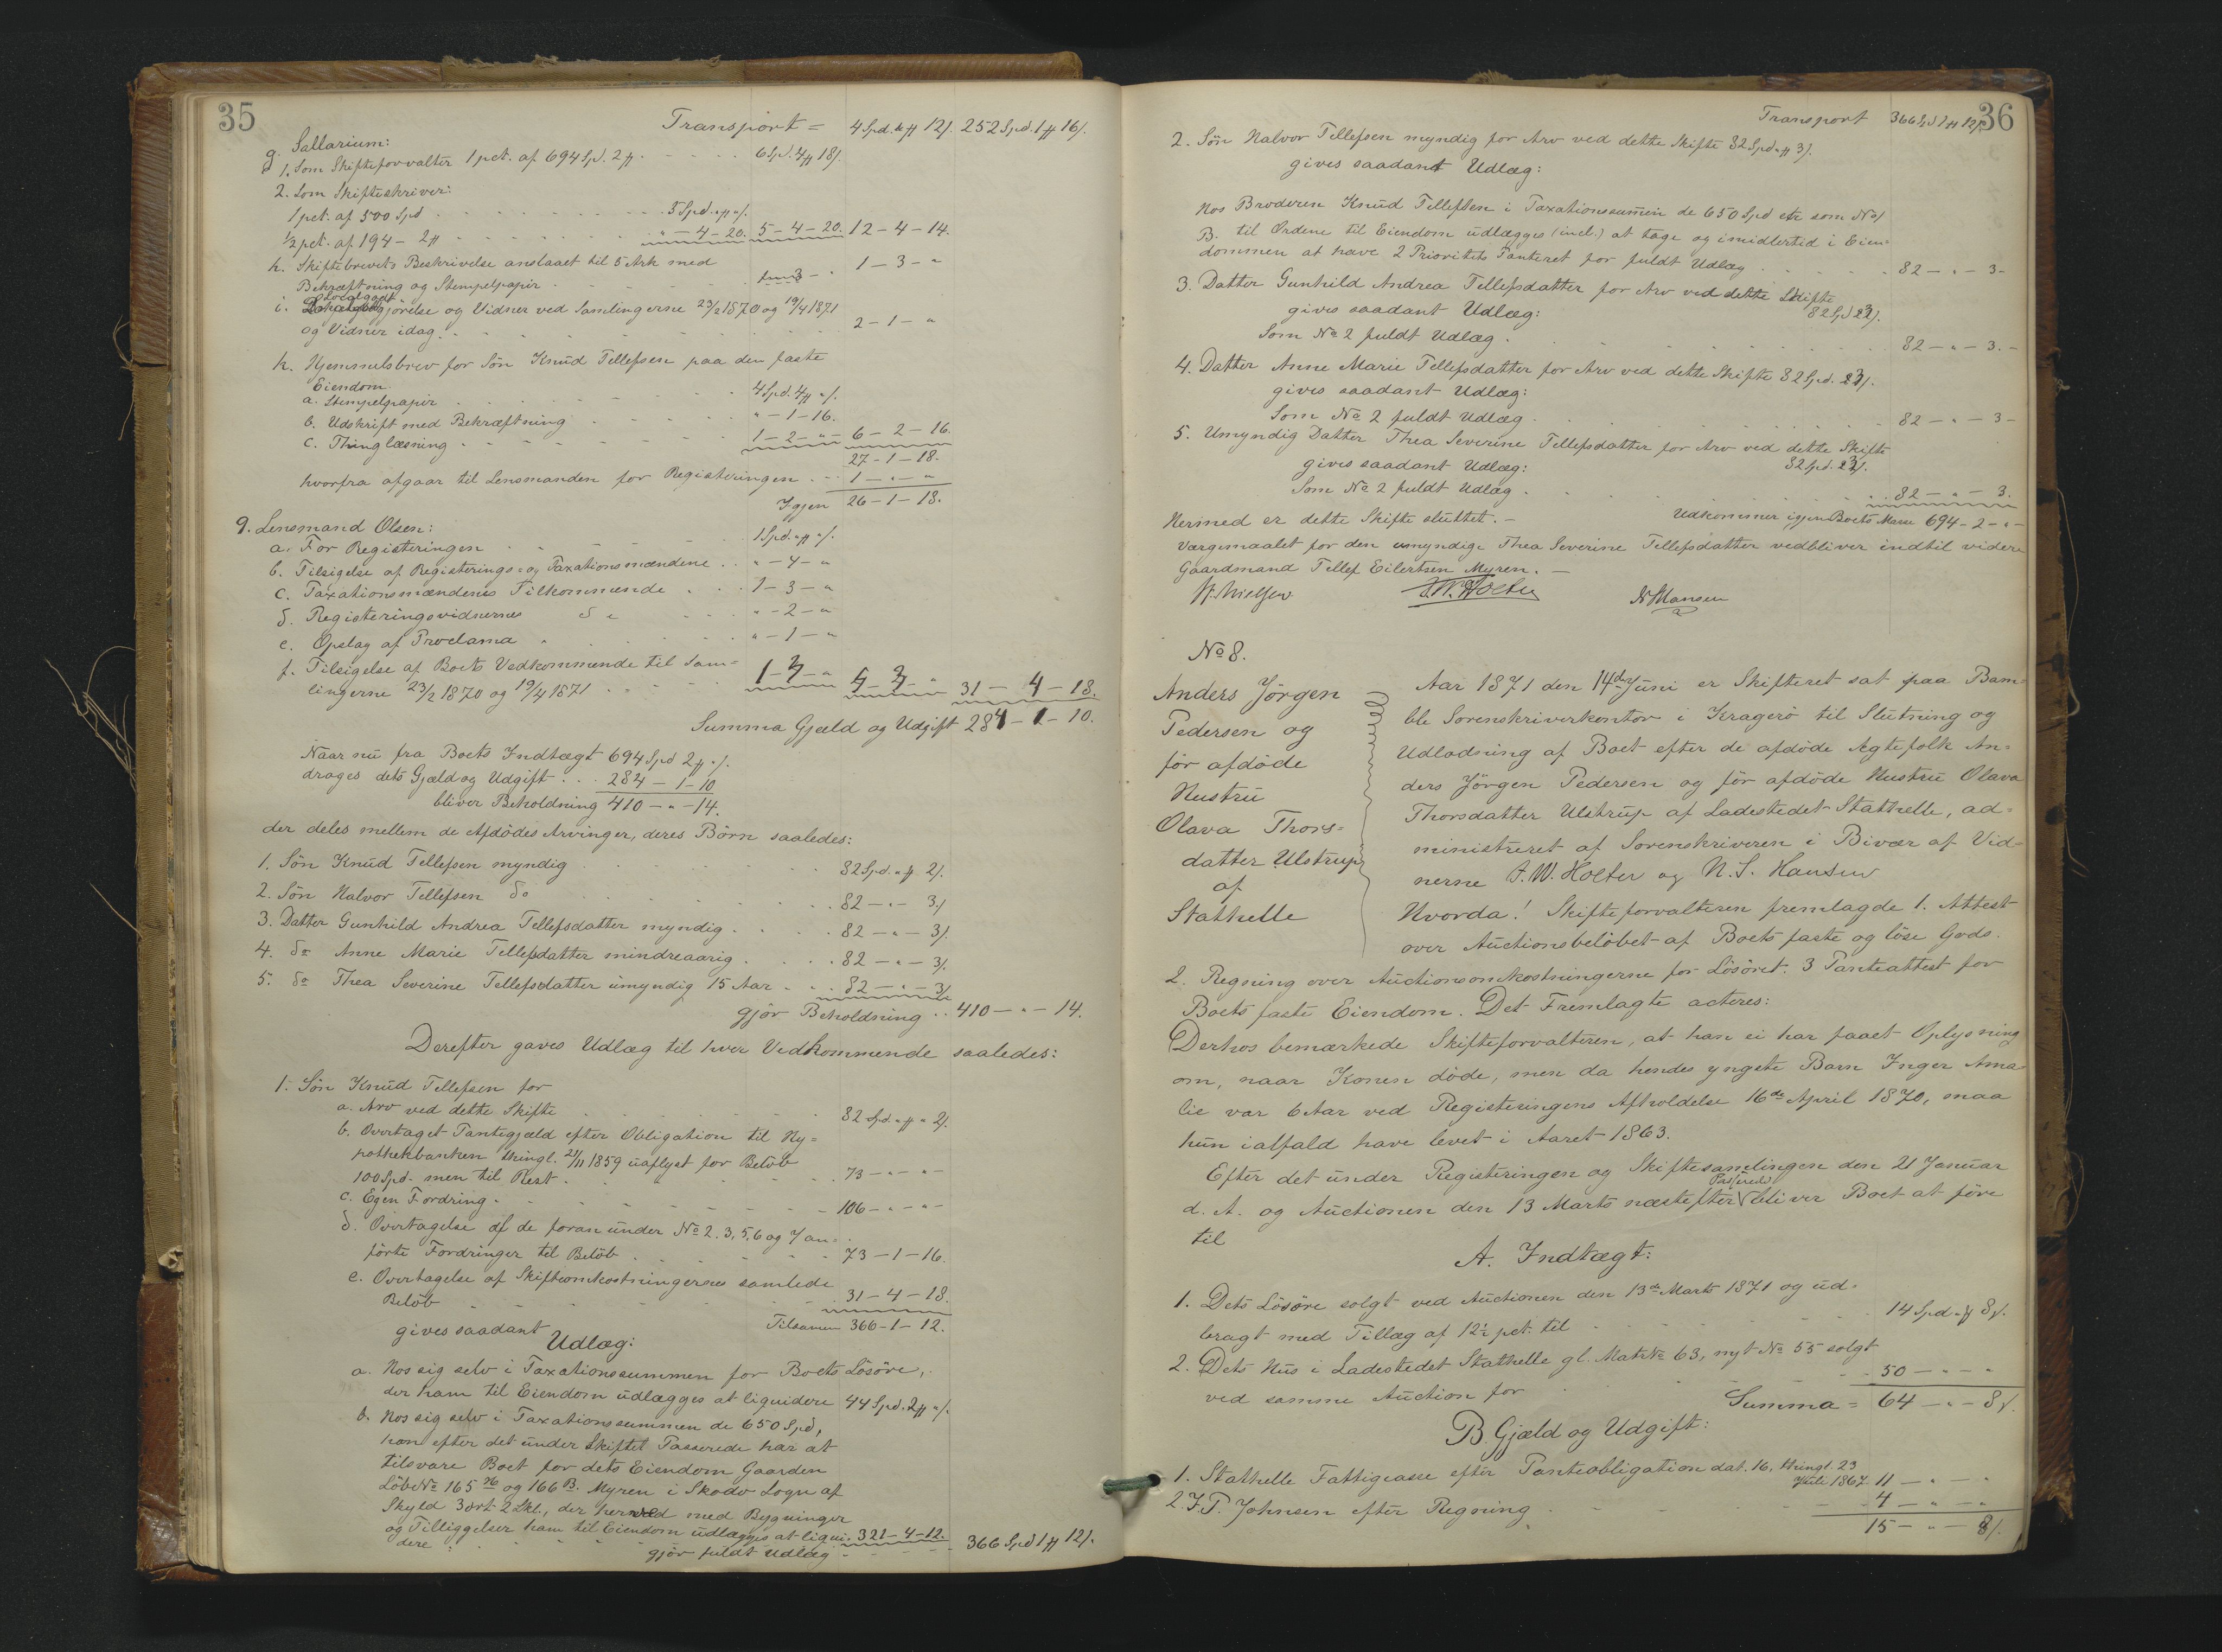 35
Transport = 4 Spd. 4 ₰ 12 ß. 252 Spd. 1 ₰ 16 ß.
g. Sallarium:
1. Som Skifteforvalter 1 pct. af 694 Spd. 2 ₰ . . . . 6 Spd. 4 ₰ 18 ß.
2. Som Skifteskriver:
1 pct. af 500 Spd . . . 5 Spd. „ ₰ „ ß.
½ pct. af 194 – 2 ₰ . . . „ – 4 – 20. 5 – 4 – 20. 12 – 4 – 14.
h. Skiftebrevets Beskrivelse anslaaet til 5 Ark med
Bekræftning og Stempelpapir . . . 1 – 3 – „
i. gjörelse og Vidner ved Samlingerne 23/2 1870 og 19/4 1871
og Vidner idag . . . 2 – 1 – „
k. Hjemmelsbrev for Sön Knud Tellefsen paa den faste
Eiendom
a. Stempelpapir . . . 4 Spd. 4 ₰ „ ß.
b. Udskrift med Bekræftning . . . „ – 1 – 16.
c. Thinglæsning . . . 1 – 2 – „ – 6 – 2 – 16.
27 – 1 – 18.
hvorfra afgaar til Lensmanden for Registeringen . . . 1 – „ – „
Igjen 26 – 1 – 18.
9. Lensmand Olsen:
a. For Registeringen . . . 1 Spd. „ ₰ „ ß.
b. Tilsigelse af Registerings- og Taxationsmændene . . „ – 4 – „
c. Taxationsmændenes Tilkommende . . . 1 – 3 – „
d. Registeringsvidnernes do . . . „ – 2 – „
e. Opslag af Proclama . . . „ – 1 – „
f. Tilsigelse af Boets Vedkommende til Sam=
lingerne 23/2 1870 og 19/4 1871 . . . 1 – 3 – „ 5 – 3 – „ 31 – 4 – 18.
Summa Gjæld og Udgift 284 – 1 – 10.
Naar nu fra Boets Indtægt 694 Spd 2 ₰ „ ß.
drages dets Gjæld og Udgift . . . 284 – 1 – 10
bliver Beholdning 410 – „ – 14.
der deles mellem de Afdödes Arvinger, deres Börn saaledes:
1. Sön Knud Tellefsen myndig . . . 82 Spd. „ ₰ 2 ß.
2. Sön Halvor Tellefsen do . . . 82 – „ – 3 ß
3. Datter Gunhild Andrea Tellefsdatter myndig . . . 82 – „ – 3 ß.
4. do Anne Marie Tellefsdatter mindreaarig . . . 82 – „ – 3 ß.
5. do Thea Severine Tellefsdatter umyndig 15 Aar . . . 82 – „ – 3 ß
gjör Beholdning . . 410 – „ – 14.
Derefter gaves Udlæg til hver Vedkommende saaledes:
1. Sön Knud Tellefsen for
a. Arv ved dette Skifte . . . 82 Spd. „ ₰ „ 2 ß.
b. Overtaget Pantegjæld efter Obligation til Hy=
pothekbanken thingl. 21/11 1859 uaflyst for Belöb
100 Spd. men til Rest . . . 73 – „ – „ –
c. Egen Fordring . . . 106 – „ – „ –
d. Overtagelse af de foran under No 2. 3, 5, 6 og 7 an=
förte Fordringer til Belöb . . . 73 – 1 – 16.
e. Overtagelse af Skifteomkostningernes samlede
Belöb . . . 31 – 4 – 18.
Tilsamen 366 – 1 – 12.
gives saadant Udlæg:
a. Hos sig selv i Taxationssummen for Boets Lösöre,
der ham til Eiendom udlægges at liquidere 44 Spd. 2 ₰ „ ß.
b. Hos sig selv i Taxationssummen de 650 Spd,
han efter det under Skiftet Passerede har at
tilsvare Boet for dets Eiendom Gaarden
Löbe No 165 og 166 B. Myren i Skodö Sogn af
Skyld 3 ort 2 Skl., der herved med Bygninger
og Tilliggelser ham til Eiendom udlægges at liqui- 321 – 4 – 12.
dere . . . gjör fuldt Udlæg . . . 366 Spd 1 ₰ 12 ß.
36
Transport 366 Spd 1 ₰ 12 ß.
2. Sön Halvor Tellefsen myndig for Arv ved dette Skifte 82 Spd „ ₰ 3 ß.
gives saadant Udlæg:
Hos Broderen Knud Tellefsen i Taxationssumen de 650 Spd etc som No 1
B. til Ordene til Eiendom udlægges (incl.) at tage og imidlertid i Eien=
dommen at have 2 Prioritets Panteret for fuldt Udlæg . . . 82 – „ – 3 –
3. Datter Gunhild Andrea Tellefsdatter for Arv ved dette Skifte
gives saadant Udlæg: 82 Spd 3 ß.
Som No 2 fuldt Udlæg . . . 82 – „ – 3. –
4. Datter Anne Marie Tellefsdatter for Arv ved dette Skifte 82 Spd. 3 ß.
gives saadant Udlæg:
Som No 2 fuldt Udlæg . . . 82 – „ – 3 –
5. Umyndig Datter Thea Severine Tellefsdatter for Arv ved dette Skifte
gives saadant Udlæg: 82 Spd. 3 ß.
Som No 2 fuldt Udlæg . . . 82 – „ – 3.
Hermed er dette Skifte sluttet. – Udkommer igjen Boets Masse 694 – 2 – „ –
Værgemaalet for den umyndige Thea Severine Tellefsdatter vedbliver indtil videre
Gaardmand Tellef Eilertsen Myren. –
H. Nielsen J. W. Holter N S Hansen
No 8.
Anders Jörgen
Pedersen og
för afdöde
Hustru
Olava Thors=
datter Ulstrup
af
Stathelle
Aar 1871 den 14de Juni er Skifteret sat paa Bam=
ble Sorenskriverkontor i Kragerö til Slutning og
Udlodning af Boet efter de afdöde Ægtefolk An=
ders Jörgen Pedersen og för afdöde Hustru Olava
Thorsdatter Ulstrup af Ladestedet Stathelle, ad=
ministreret af Sorenskriveren i Bivær af Vid=
nerne J. W. Holter og N. S. Hansen
Hvorda! Skifteforvalteren fremlagde 1. Attest
over Auctionsbelöbet af Boets faste og löse Gods.
2. Regning over Auctionsomkostningerne for Lösöret. 3 Panteattest for
Boets faste Eiendom. Det Fremlagte acteres:
Derhos bemærkede Skifteforvalteren, at han ei har faaet Oplysning
om, naar Konen döde, men da hendes yngste Barn Inger Ama=
lie var 6 Aar ved Registeringens Afholdelse 16de April 1870, maa
hun ialfald have levet i Aaret 1863.
Efter det under Registeringen og Skiftesamlingen den 21 Januar
d. A. og Auctionen den 13 Marts næstefter Passerede bliver Boet at före
til
A. Indtægt:
1. Dets Lösöre solgt ved Auctionen den 13de Marts 1871 og ud=
bragt med Tillæg af 12½ pct. til . . . 14 Spd „ ₰ 8 ß.
2. Dets Hus i Ladestedet Stathelle gl. Matr No 63, nyt No 55 solgt
ved samme Auction for . . . 50 – „ – „
Summa = 64 – „ – 8 ß.
B. Gjæld og Udgift:
1. Stathelle Fattigcasse efter Panteobligation dat. 16, thingl. 23
Juli 1867 11 – „ – „
2. J. P. Johnsen efter Regning . . . 4 – „ – „
15 – „ – 8 ß.